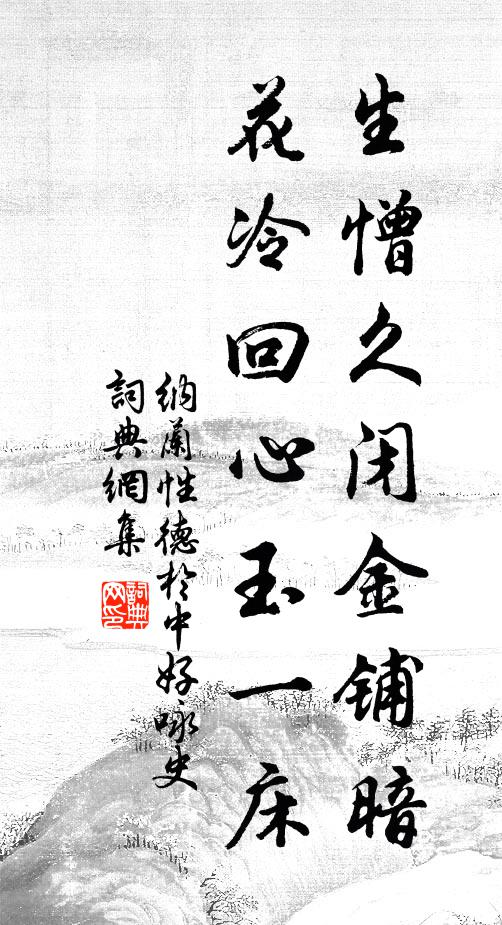 生憎久闭金铺暗
花冷回心玉一床
纳蘭性德於中好咏史
詞典網集
詞典网印